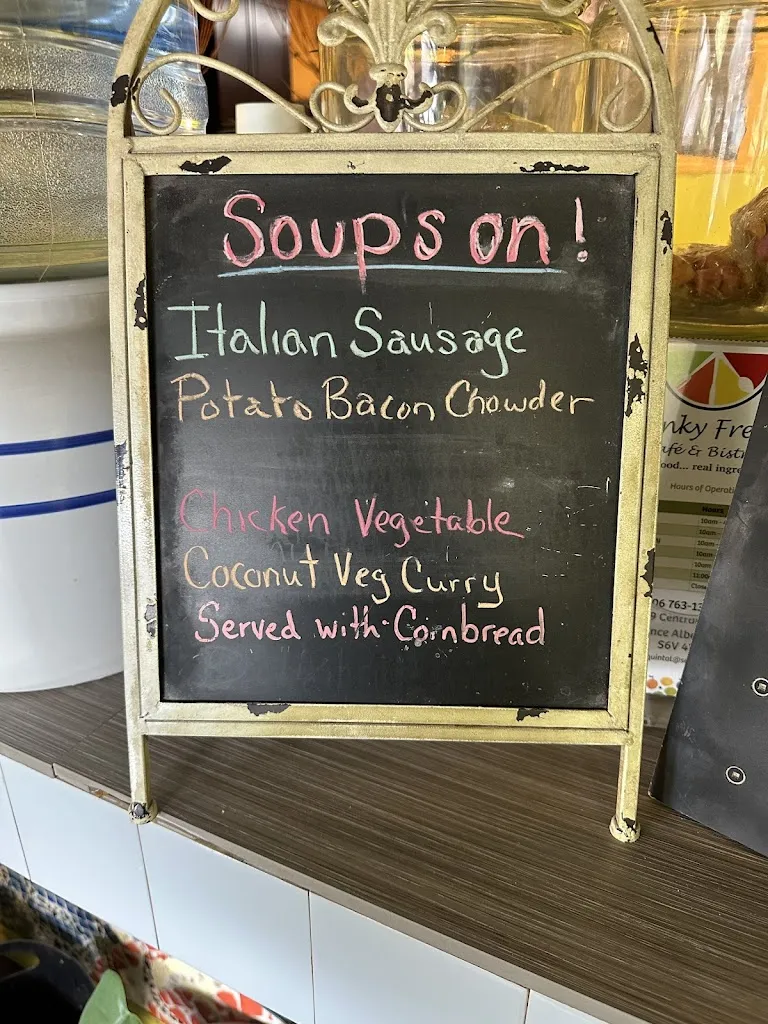 Soup's on!
Italian Sausage
Potato Bacon Chowder
Chicken Vegetable
Coconut Veg Curry
Served with Cornbread
nky Fre
afé & Bist
ood... real ingre
Hours of Operati
Hours
10am -
10am -
10am -
10am
11:00
Close
06 763-13
9 Centra
nce Albe
S6V 4
quintol@s